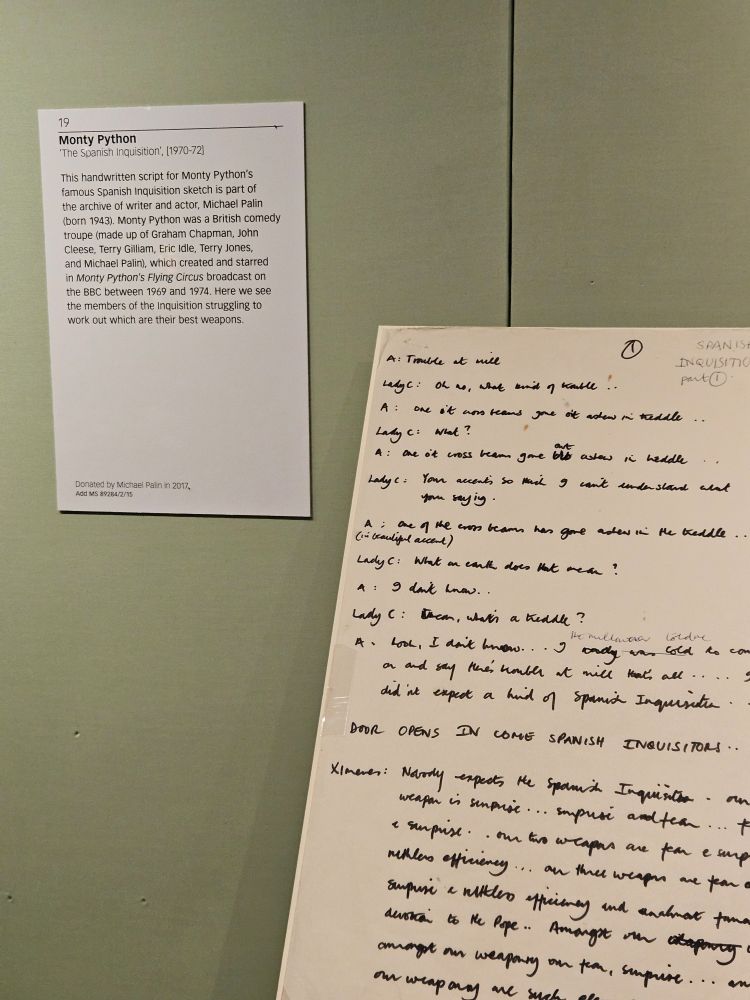 19
Monty Python
'The Spanish Inquisition', [1970-72]
This handwritten script for Monty Python's
famous Spanish Inquisition sketch is part of
the archive of writer and actor, Michael Palin
(born 1943). Monty Python was a British comedy
troupe (made up of Graham Chapman, John
Cleese, Terry Gilliam, Eric Idle, Terry Jones,
and Michael Palin), which created and starred
in Monty Python's Flying Circus broadcast on
the BBC between 1969 and 1974. Here we see
the members of the Inquisition struggling to
work out which are their best weapons.
Donated by Michael Palin in 2017.
Add MS 89284/2/15
1
SPANISH
INQUISITIO
part 1
A: Trouble at mill
Lady C: Oh no, what kind of trouble ..
A: one o't cross beams gone o't askew in treddle ..
Lady C: What?
A: one o't cross beam gone out askew in treddle ...
Lady C: Your accent's so thick I can't understand what
you saying.
A: one of the cross beams has gone askew in the treddle ...
(in beautiful accent)
Lady C: What on earth does that mean?
A: I don't know..
Lady C: mean, what's a treddle?
the millowner told me
A. Look, I don't know.... I was told to com
on and say there's trouble at mill that's all ..... I
did'nt expect a kind of Spanish Inquisition..
DOOR OPENS IN COME SPANISH INQUISITORS..
Ximenes: Nobody expects the Spanish Inquisition. our
weapon is surprise... surprise and fear... f
& surprise.. our two weapons are fear & surp
ruthless efficiency... our three weapons are fear
surprise & ruthless efficiency and an almost fana
devotion to the Pope.. Amongst our weaponry
amongst our weaponry are fear, surprise... an
our weaponry are such